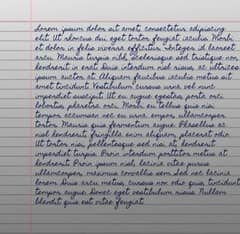 Lorem ipsum dolor sit amet, consectetur adipiscing
elit. Ut rhoncus dui eget tortor feugiat iaculis. Morbi
et dolor in felis viverra efficitur. Integer id laoreet
arcu. Mauris turpis nibh, scelerisque sed tristique non,
hendrerit in erat. Duis interdum nisl risus, ac ultrices
ipsum auctor at. Aliquam faucibus iaculis metus sit
amet tincidunt. Vestibulum cursus urna vel nunc
imperdiet suscipit. Ut eu augue egestas, porta orci
lobortis, pharetra orci. Morbi eu tellus quis nisi
tempor accumsan nec eu urna. ullamcorper
tortor. Mauris quis fermentum augue. Phasellus at
nisl hendrerit, fringilla enim aliquam, placerat odio.
Ut tortor nisi, pellentesque sed nisi at, hendrerit
imperdiet turpis. Proin interdum porttitor metus at
hendrerit. Proin ipsum nisl, lacinia vitae purus
ullamcorper, maximus convallis sem. Sed nec lacinia
lorem. Duis arcu metus, cursus non odio quis, tincidunt
tempor augue. Donec eget vestibulum risus. Nullam
blandit quis est vitae feugiat.